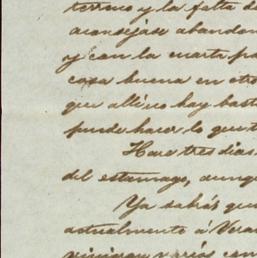 terreno y la falta de
aconsejase abandon
y con la cuarta pa
cosa buena en otr
que allí no hay bast
puede hacer lo que t
Hace tres dias
del estomago, aunq
Ya sabrás que
actualmente á Vera
vinieron varios com